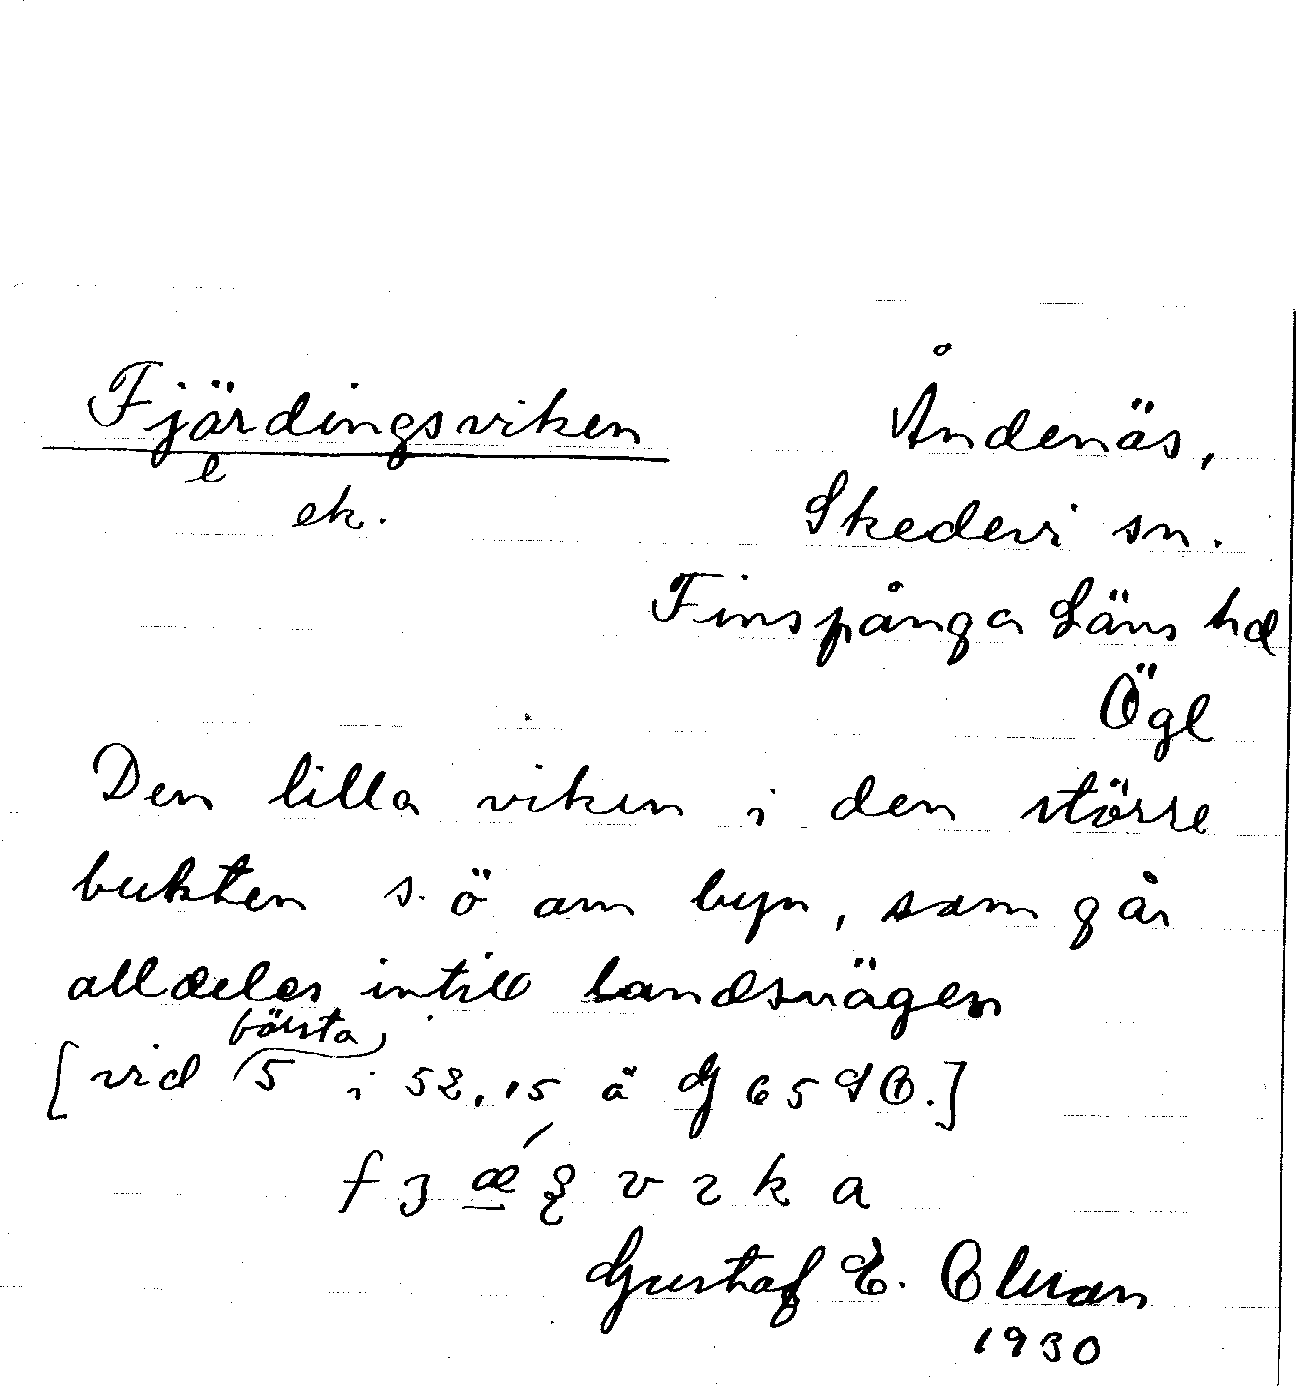 Fjärdingsviken
e
ek.
Åndenäs,
Skedevi sn.
Finspånga Läns hd
Ögl
Den lilla viken i den större
bukten s. ö om byn, som går
alldeles intill landsvägen
första
[vid 5 i 52,15 å G 65 SO.]
Gustaf E.
1930